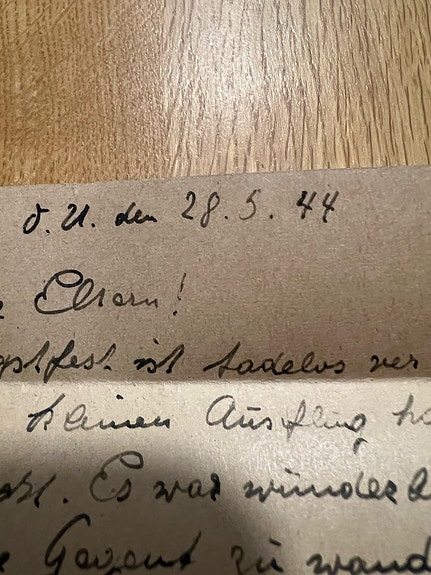 O. U. den 28. 5. 44
Eltern!
gstfest ist tadelos ver
kleinen Ausflug ha
Es war wunder
Gegent zu wand